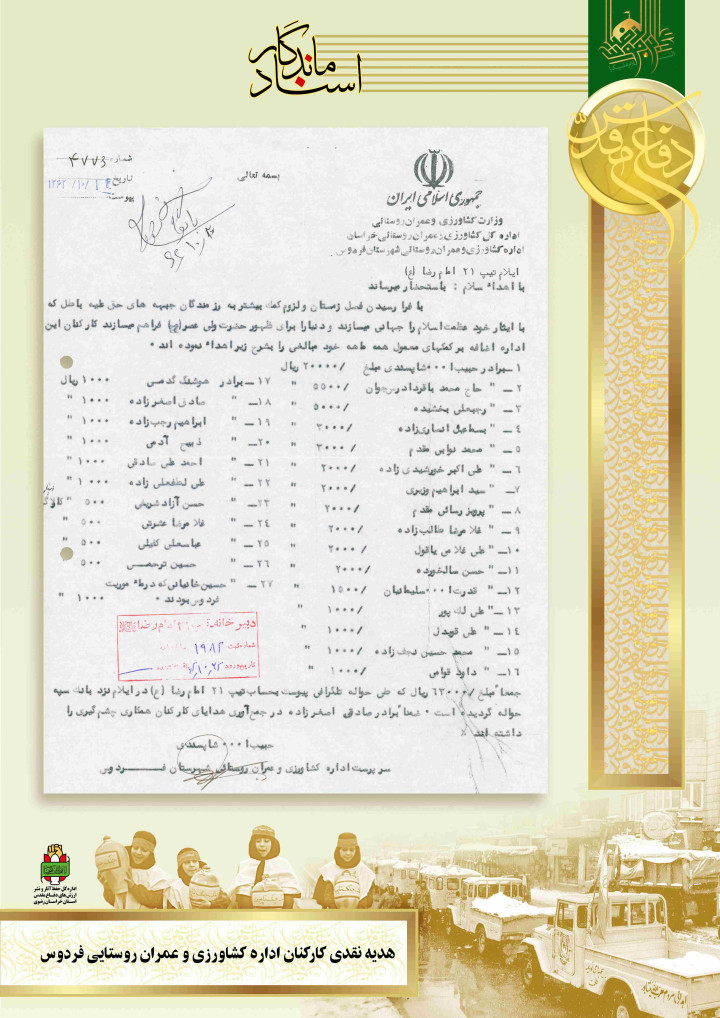 اسناد ماندگار
دفاع مقدس
شماره ۴۷۷۳
تاریخ ۱۳۶۲/۱۰/۱۴
پیوست
بسمه تعالی
جمهوری اسلامی ایران
وزارت کشاورزی و عمران روستائی
اداره کل کشاورزی و عمران روستائی خراسان
اداره کشاورزی و عمران روستائی شهرستان فردوس
ایلام تیپ ۲۱ امام رضا (ع)
با اهداء سلام : باستحضار میرساند
با فرا رسیدن فصل زمستان و لزوم کمک بیشتر به رزمندگان جبهه های حق علیه باطل که
با ایثار خود عظمت اسلام را جهانی میسازند و دنیا را برای ظهور حضرت ولی عصر (عج) فراهم میسازند کارکنان این
اداره اضافه بر کمکهای معمول همه ماهه خود مبالغی را بشرح زیر اهداء نموده اند .
۱ ــ برادر حبیب ا ۰۰۰ شاپسندی مبلغ /۲۰۰۰۰ ریال
۲ ــ " حاج محمد باقر داد رسجوان /۵۵۰۰ "
۳ ــ " رجبعلی بخشیده /۵۰۰۰ "
۴ ــ " اسماعیل انصاری زاده /۳۰۰۰ "
۵ ــ " محمد نوابی مقدم /۳۰۰۰ "
۶ ــ " علی اکبر خورشیدی زاده /۲۰۰۰ "
۷ــ " سید ابراهیم وزیری /۲۰۰۰ "
۸ ــ " پرویز رسائی مقدم /۲۰۰۰ "
۹ ــ " غلامرضا طالب زاده /۲۰۰۰ "
۱۰ــ " علی غلامی یاقول /۲۰۰۰ "
۱۱ــ " حسن سالخورده /۲۰۰۰ "
۱۲ــ " قدرت ا ۰۰۰ سلیمانیان /۱۵۰۰ "
۱۳ــ " علی لله پور /۱۰۰۰ "
۱۴ ــ " علی قویدل /۱۰۰۰ "
۱۵ــ " محمد حسین نجف زاده /۱۰۰۰ "
۱۶ــ " داود قوامی /۱۰۰۰ "
۱۷ ــ برادر هوشنگ گدمی ۱۰۰۰ ریال
۱۸ــ " صادق اصغرزاده ۱۰۰۰ "
۱۹ ــ " ابراهیم رجب زاده ۱۰۰۰ "
۲۰ــ " ذبیح آدمی ۱۰۰۰ "
۲۱ ــ " احمد علی صادقی ۱۰۰۰ "
۲۲ ــ " علی لطفعلی زاده ۱۰۰۰ "
۲۳ــ " حسن آزاد شریفی ۵۰۰ "
۲۴ ــ " غلامرضا عشرتی ۵۰۰ "
۲۵ ــ " عباسعلی کفیلی ۵۰۰ "
۲۶ ــ " حسین ترحمی ۵۰۰
۲۷ ــ " حسین خانیانی که در ماموریت
فردوس بودند . ۱۰۰۰ "
دبیرخانه تیپ ۲۱ امام رضا
شماره ثبت ۱۹۸۲
تاریخ ورود ۶۲,۱۰,
جمعا مبلغ /۶۳۰۰۰ ریال که طی حواله تلگرافی پیوست بحساب تیپ ۲۱ امام رضا (ع) در ایلام نزد بانک سپه
حواله گردیده است . ضمنا برادر صادق اصغرزاده در جمع آوری هدایای کارکنان همکاری چشم گیری را
داشته اند .
حبیب ا ۰۰۰ شاپسندی
سرپرست اداره کشاورزی و عمران روستائی شهرستان فردوس
اداره کل حفظ آثار و نشر
ارزش‌های دفاع مقدس
استان خراسان رضوی
هدیه نقدی کارکنان اداره کشاورزی و عمران روستایی فردوس